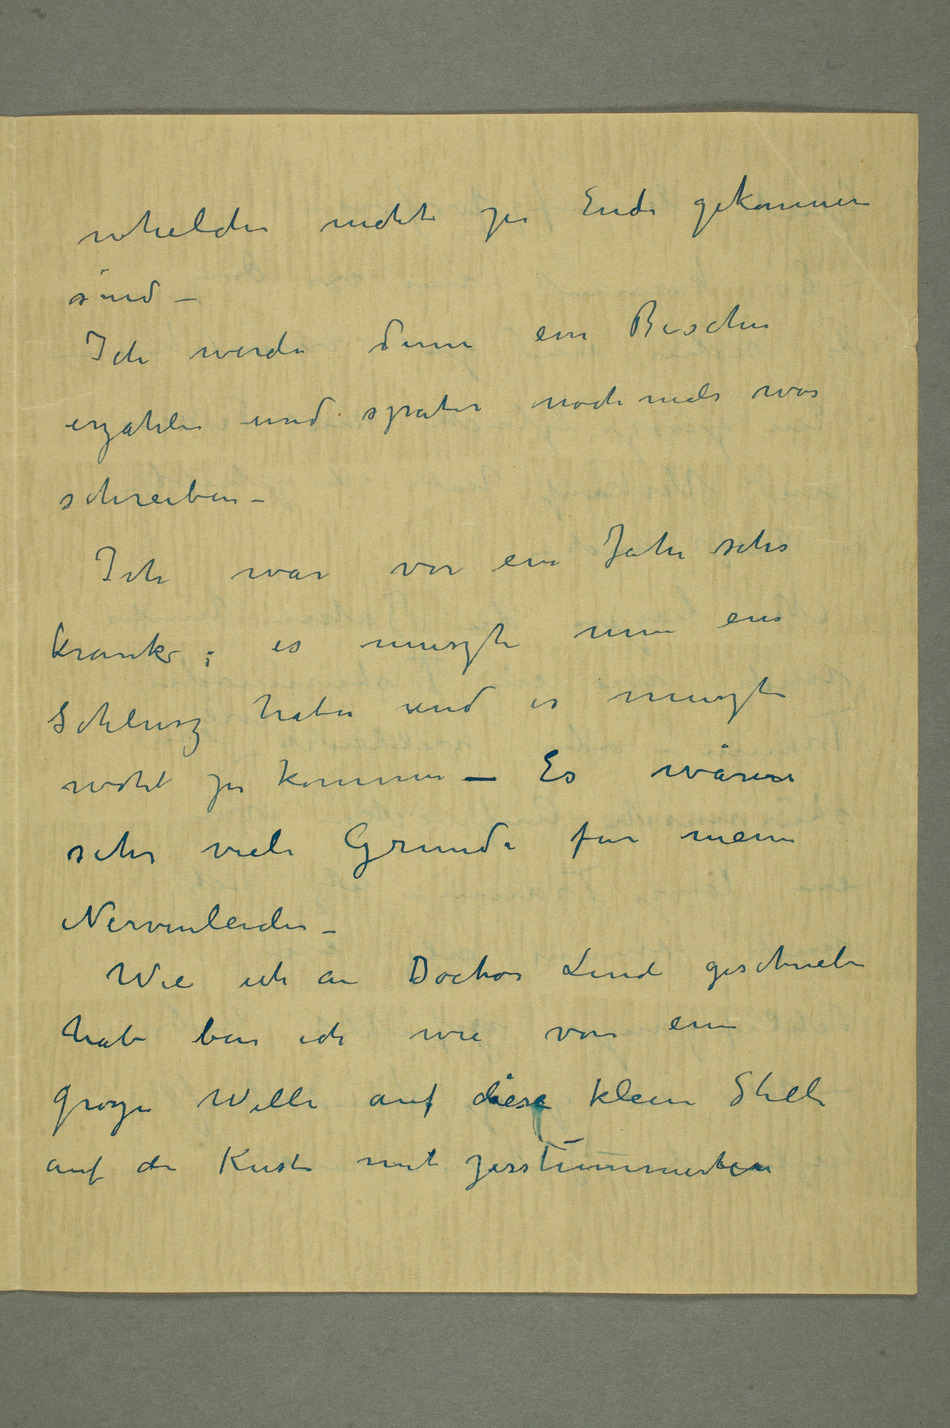 whelche nicht zu Ende gekommen
sind –
Ich werde Ihnen ein Bischen
erzählen und später noch mals was
schreiben –
Ich war vor ein Jahr sehr
krank; es muszte nun ein
Schlusz haben und es muszte
wohl zu kommen – Es wären
sehr viele Grunde fur meine
Nervenleiden –
Wie ich an Doctor Linde geschrieben
habe bin ich wie von eine
grosze Welle auf diese kleine Stelle
auf die Kuste mit zerstümmerten